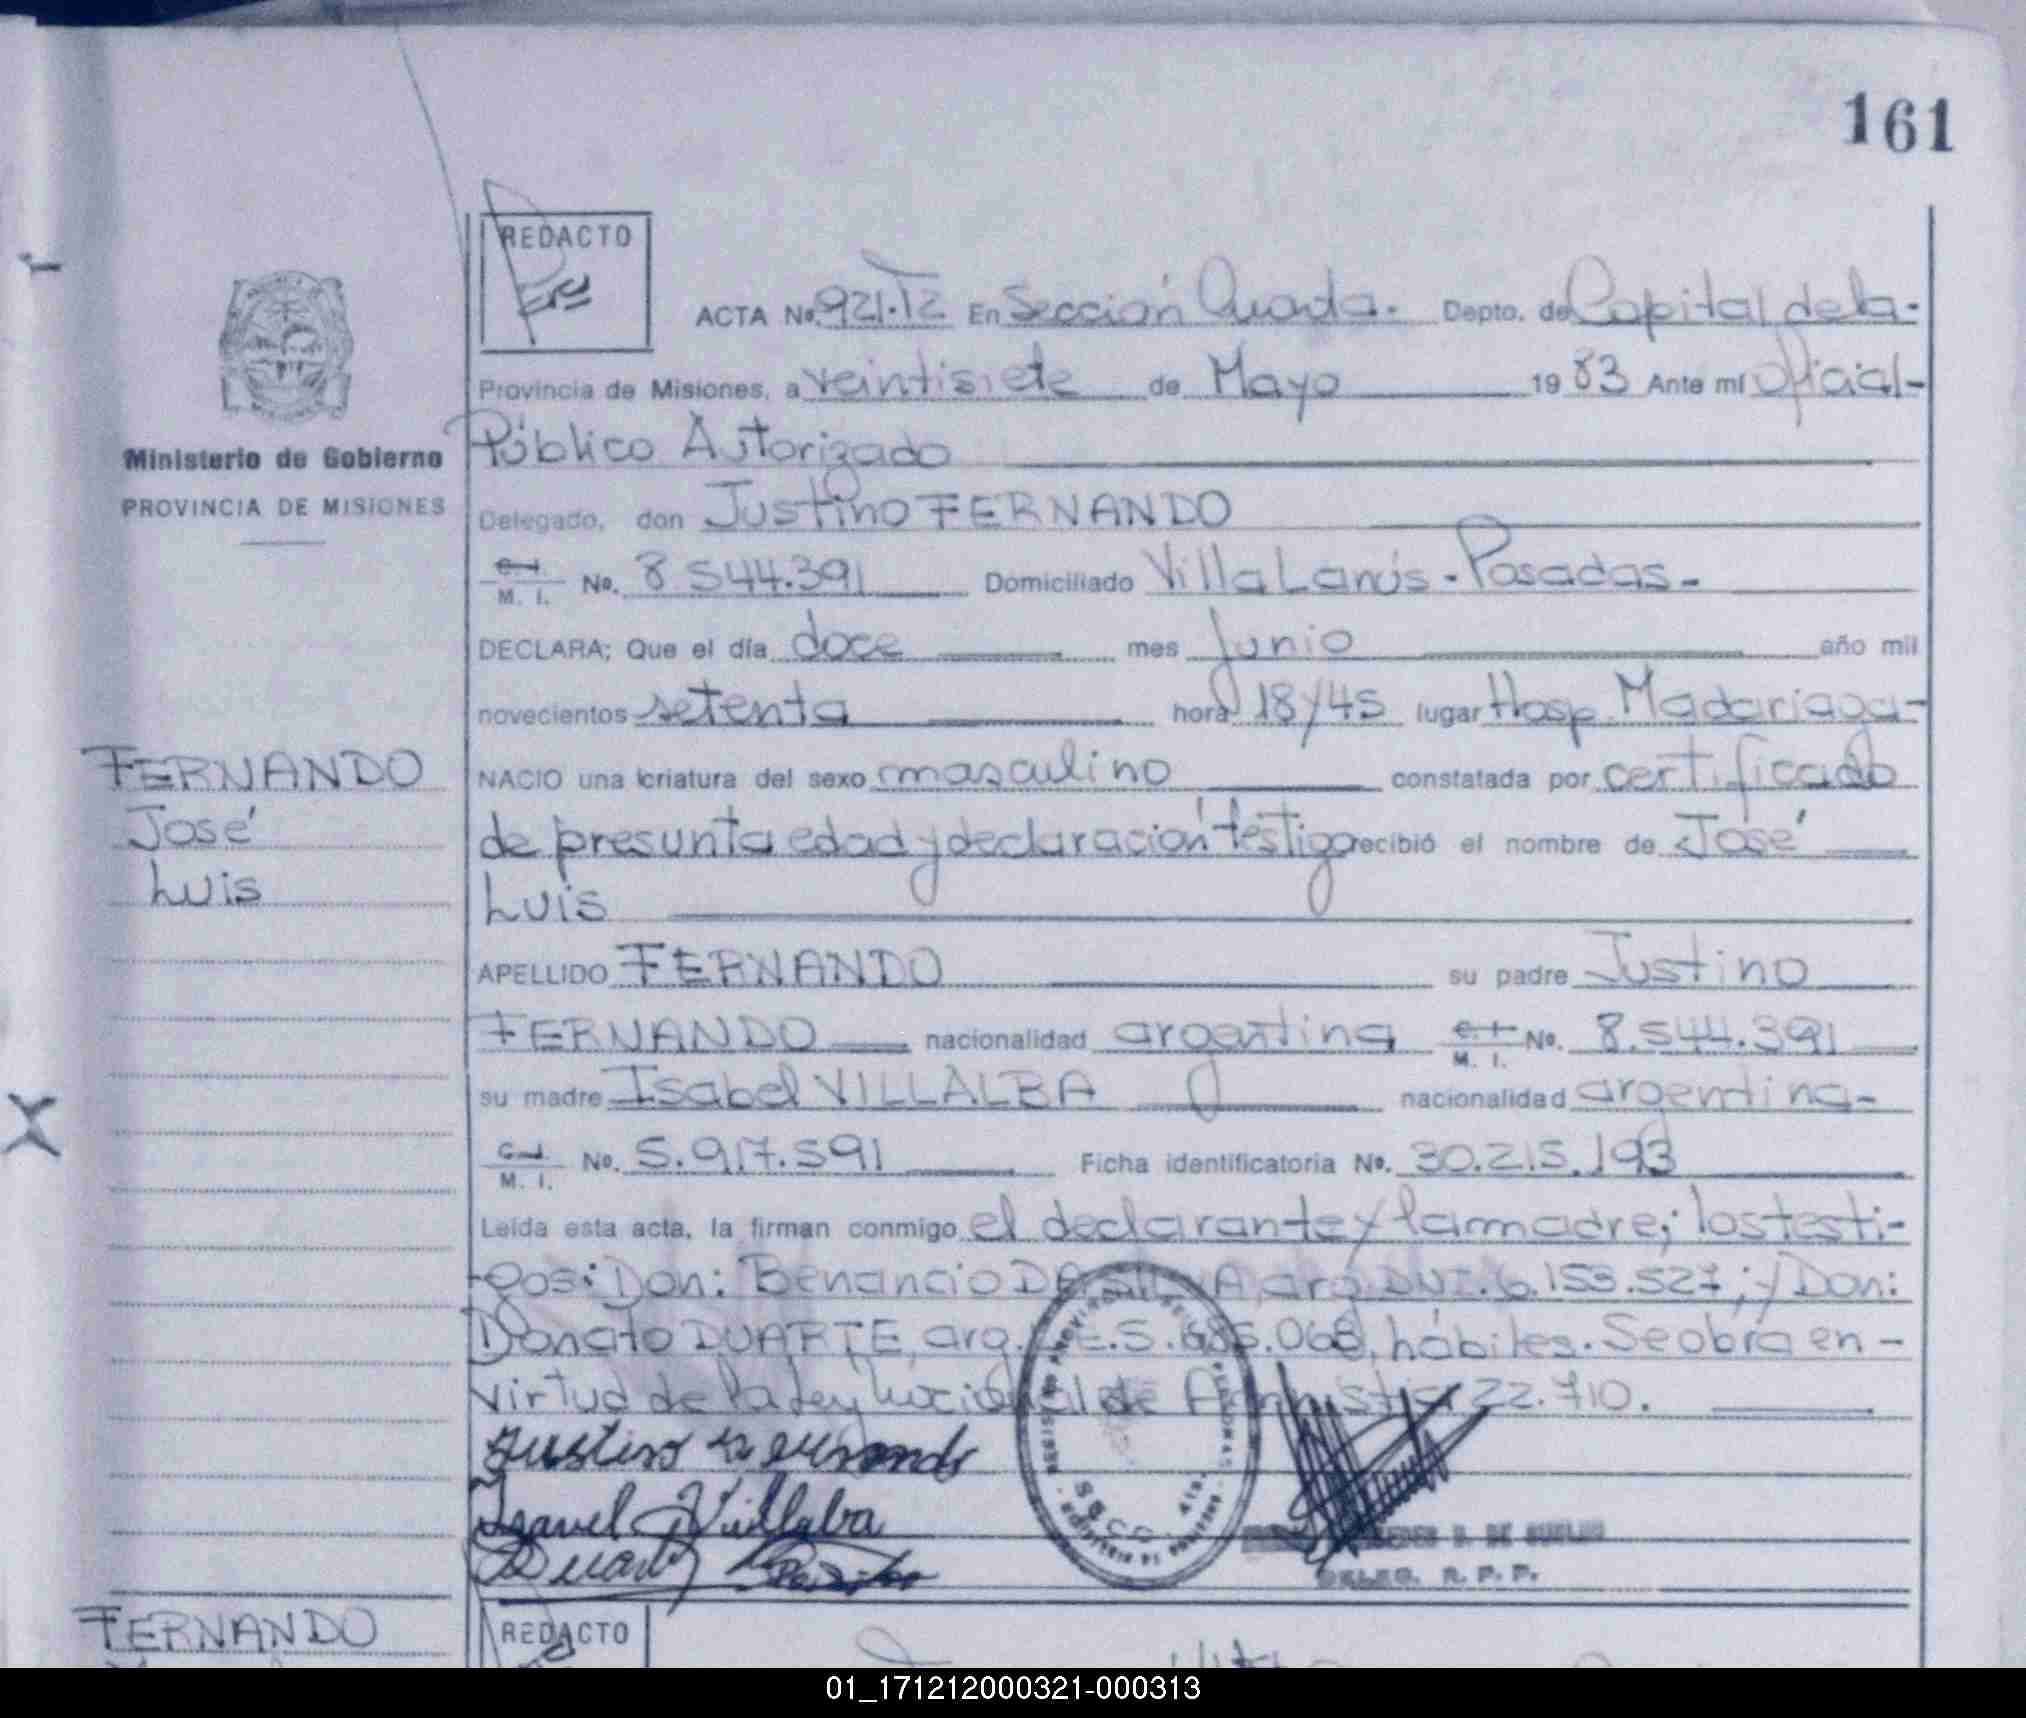 161
REDACTO
ACTA No. 921.T2 En Sección Cuarta. Depto. de Capital de la.
Provincia de Misiones, a veintisiete de Mayo 1983 Ante mí Oficial-
Ministerio de Gobierno
PROVINCIA DE MISIONES
Público Autorizado
Delegado, don Justino FERNANDO
C.I. M. I. No. 8.544.391 Domiciliado Villa Lanús - Posadas.
DECLARA; Que el día doce mes Junio año mil
novecientos setenta hora 18y45 lugar Hosp. Madariaga-
FERNANDO
José
Luis
NACIO una criatura del sexo masculino constatada por certificado
de presunta edad y declaración testigo recibió el nombre de José
Luis
APELLIDO FERNANDO su padre Justino
FERNANDO nacionalidad argentina C.I. M. I. No. 8.544.391
su madre Isabel VILLALBA nacionalidad argentina-
C.I. M. I. No. 5.917.591 Ficha identificatoria No. 30.215.193
Leída esta acta, la firman conmigo el declarante y la madre; los testi-
-gos: Don: Benancio DA SILVA, arg. DNI. 6.153.527; y Don:
Donato DUARTE, arg. hábiles. Se obra en-
virtud de la Ley Nacional de Amnistía 22.710.
Justino Fernando
Isavel Villalba
Duarte
DE SUELDO
DELEG. R. P. P.
FERNANDO
REDACTO
01_171212000321-000313